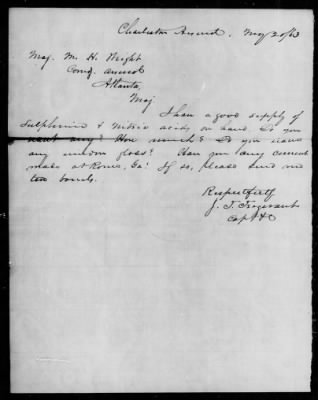 Charleston Arsenal, May 20/63
Maj. M. H. Wright
Comg. Arsenal
Atlanta
Maj
I have a good supply of
Sulphuric & Nitric acids on hand. Do you
want any? How much? Do you have
any window glass? Have you any cement
made at Rome, Ga? If so, please send me
ten barrels.
Respectfully
J. T. Trezevant
Capt